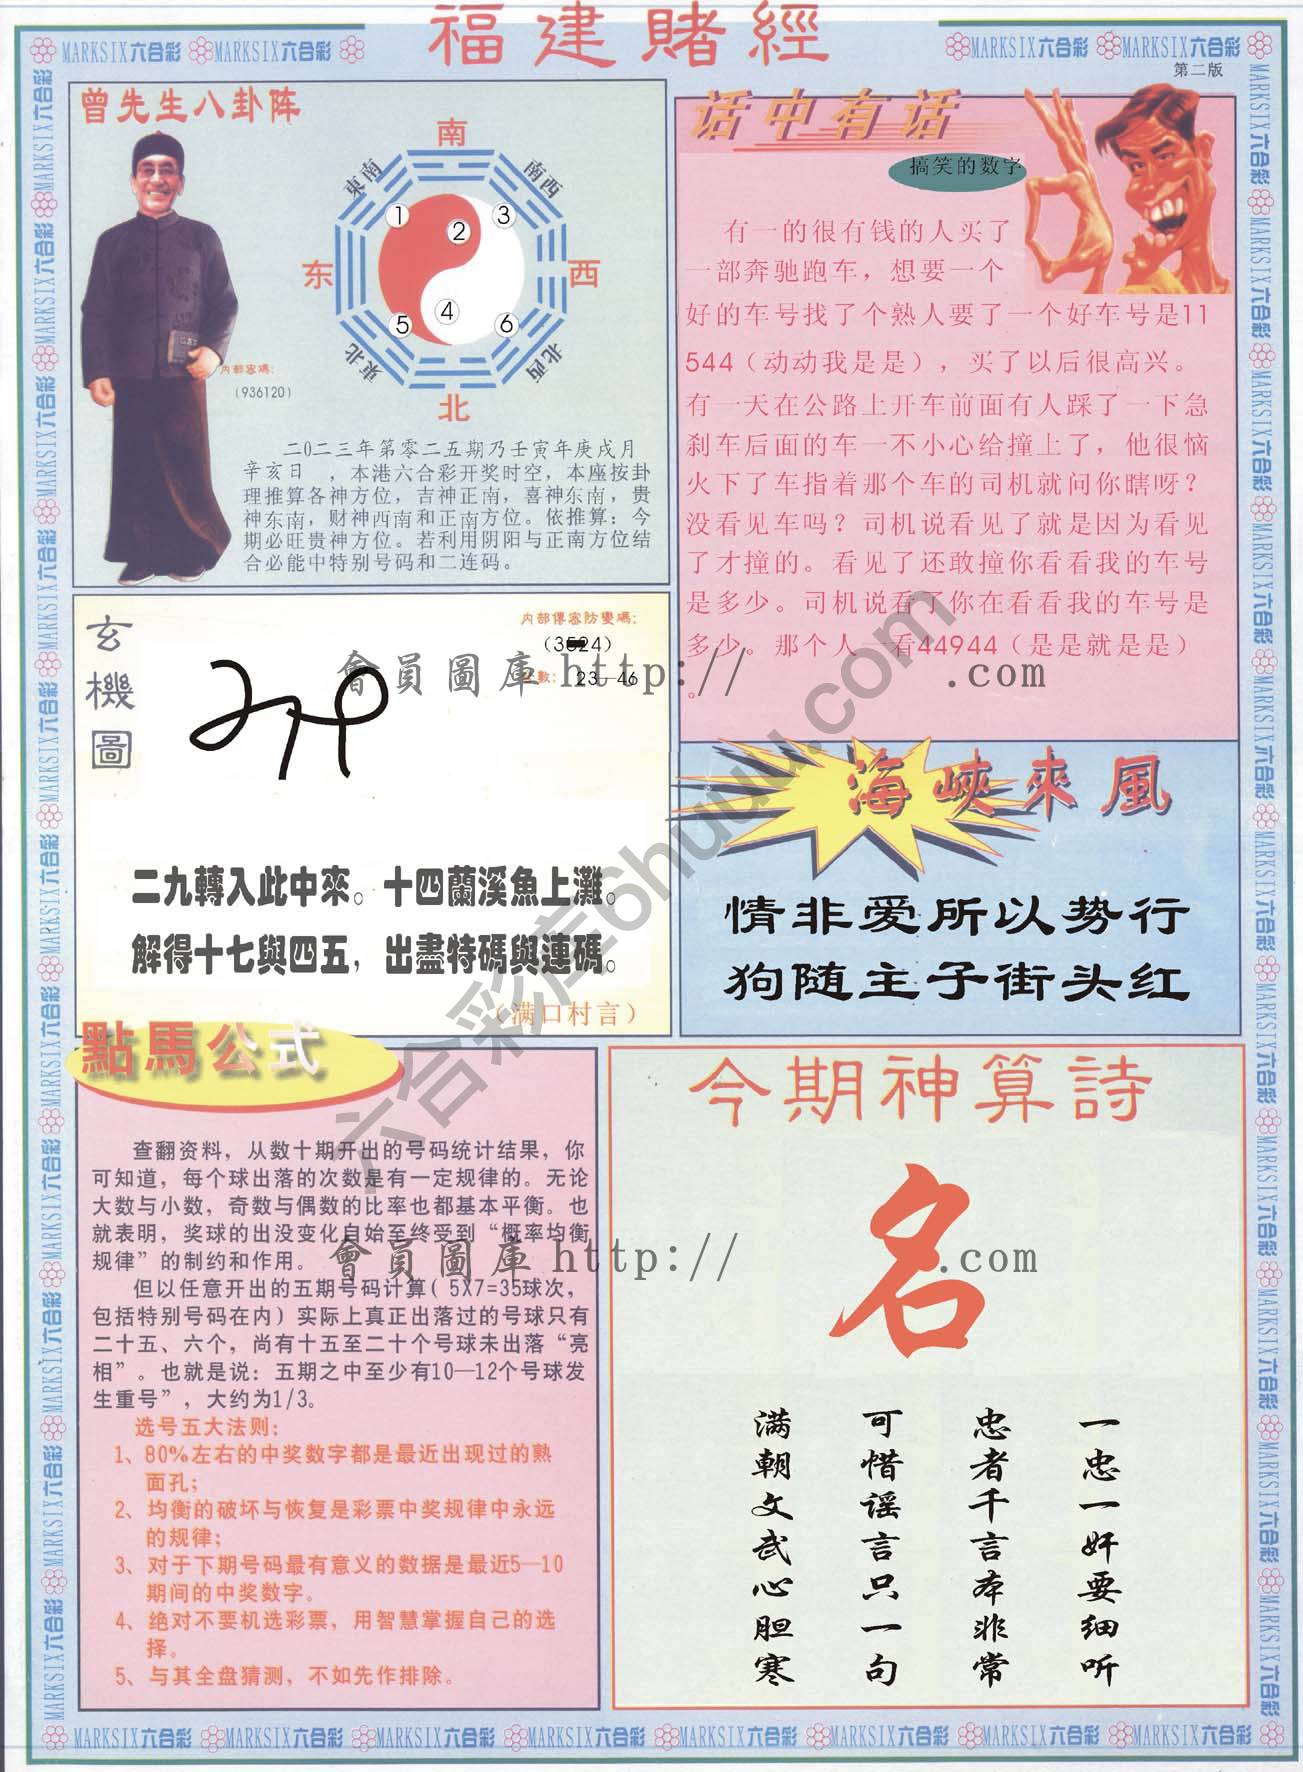 福建賭經
MARKSIX六合彩 MARKSIX六合彩
MARKSIX六合彩 MARKSIX六合彩
第二版
曾先生八卦阵
南
東南
南西
1
2
3
东
西
4
5
6
東北
北西
北
内部密碼:
(936120)
二0二三年第零二五期乃壬寅年庚戌月
辛亥日 ,本港六合彩开奖时空,本座按卦
理推算各神方位,吉神正南,喜神东南,贵
神东南,财神西南和正南方位。依推算:今
期必旺贵神方位。若利用阴阳与正南方位结
合必能中特别号码和二连码。
话中有话
搞笑的数字
有一的很有钱的人买了
一部奔驰跑车,想要一个
好的车号找了个熟人要了一个好车号是11
544(动动我是是),买了以后很高兴。
有一天在公路上开车前面有人踩了一下急
刹车后面的车一不小心给撞上了,他很恼
火下了车指着那个车的司机就问你瞎呀?
没看见车吗?司机说看见了就是因为看见
了才撞的。看见了还敢撞你看看我的车号
是多少。司机说看了你在看看我的车号是
多少。那个人一看44944(是是就是是)
。
玄機圖
内部傳密防變碼:
(3524)
數: 23—46
會員圖庫 http:// .com
二九轉入此中來。十四蘭溪魚上灘。
解得十七與四五,出盡特碼與連碼。
(满口村言)
海峽來風
情非爱所以势行
狗随主子街头红
六合彩库6huuu.com
點馬公式
查翻资料,从数十期开出的号码统计结果,你
可知道,每个球出落的次数是有一定规律的。无论
大数与小数,奇数与偶数的比率也都基本平衡。也
就表明,奖球的出没变化自始至终受到“概率均衡
规律”的制约和作用。
但以任意开出的五期号码计算(5X7=35球次,
包括特别号码在内)实际上真正出落过的号球只有
二十五、六个,尚有十五至二十个号球未出落“亮
相”。也就是说:五期之中至少有10—12个号球发
生重号”,大约为1/3。
选号五大法则:
1、80%左右的中奖数字都是最近出现过的熟
面孔;
2、均衡的破坏与恢复是彩票中奖规律中永远
的规律;
3、对于下期号码最有意义的数据是最近5—10
期间的中奖数字。
4、绝对不要机选彩票,用智慧掌握自己的选
择。
5、与其全盘猜测,不如先作排除。
會員圖庫 http:// .com
今期神算詩
名
一忠一奸要细听
忠者千言本非常
可惜谣言只一句
满朝文武心胆寒
MARKSIX六合彩 MARKSIX六合彩 MARKSIX六合彩 MARKSIX六合彩 MARKSIX六合彩 MARKSIX六合彩 MARKSIX六合彩 MARKSIX六合彩